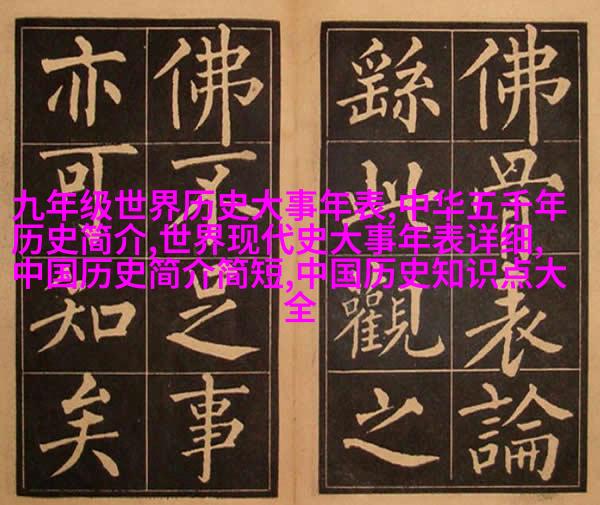 九年级世界历史大事年表,中华五千年
历史简介,世界现代史大事年表详细,
中国历史简介简短,中国历史知识点大
全
佛骨表論
繇此觀之
佛不足事
亦可知矣